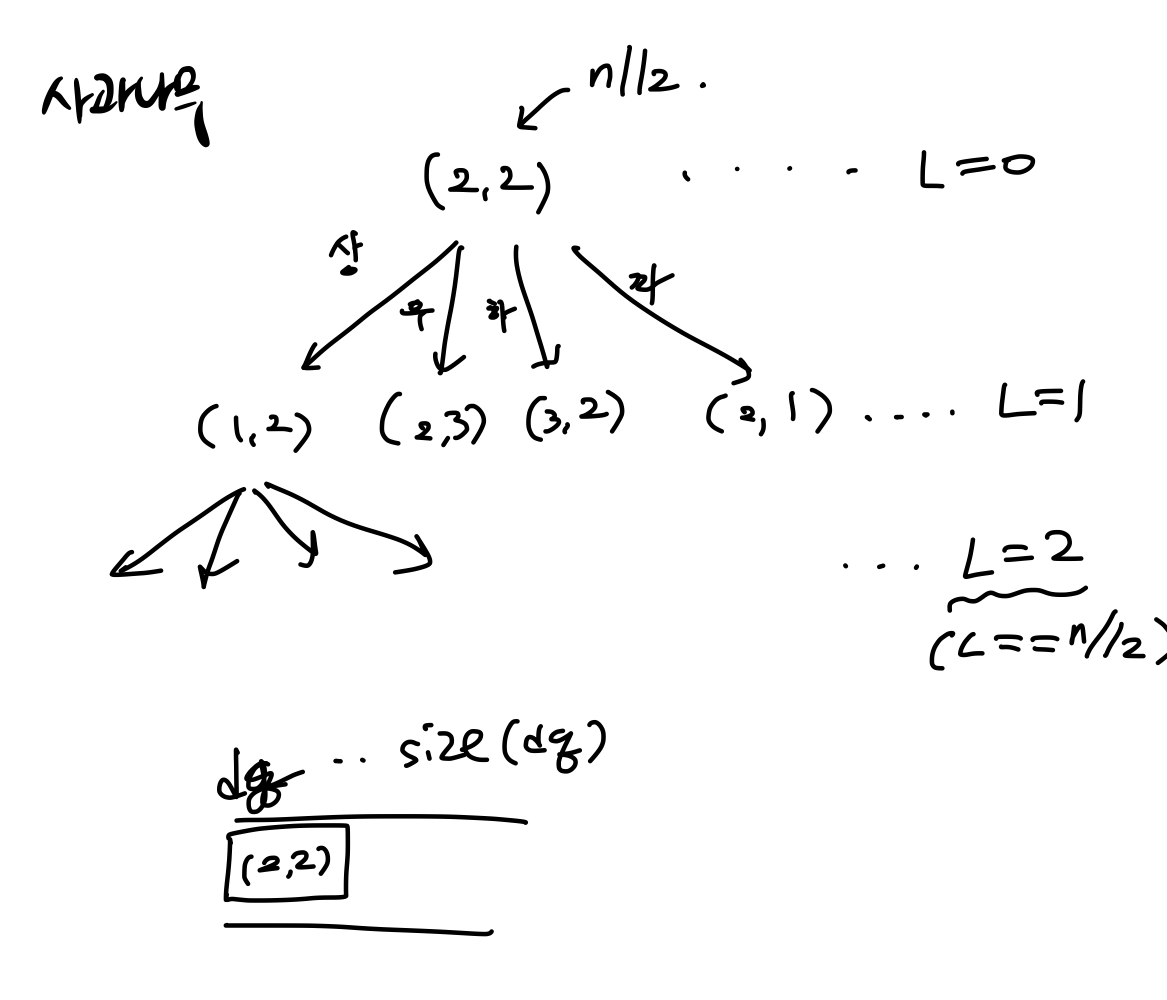 사과나무
n//2.
(2,2) .... L=0
상 우 하 좌
(1,2) (2,3) (3,2) (2,1) .... L=1
... L=2
(L==n//2)
dq .. size(dq)
(2,2)